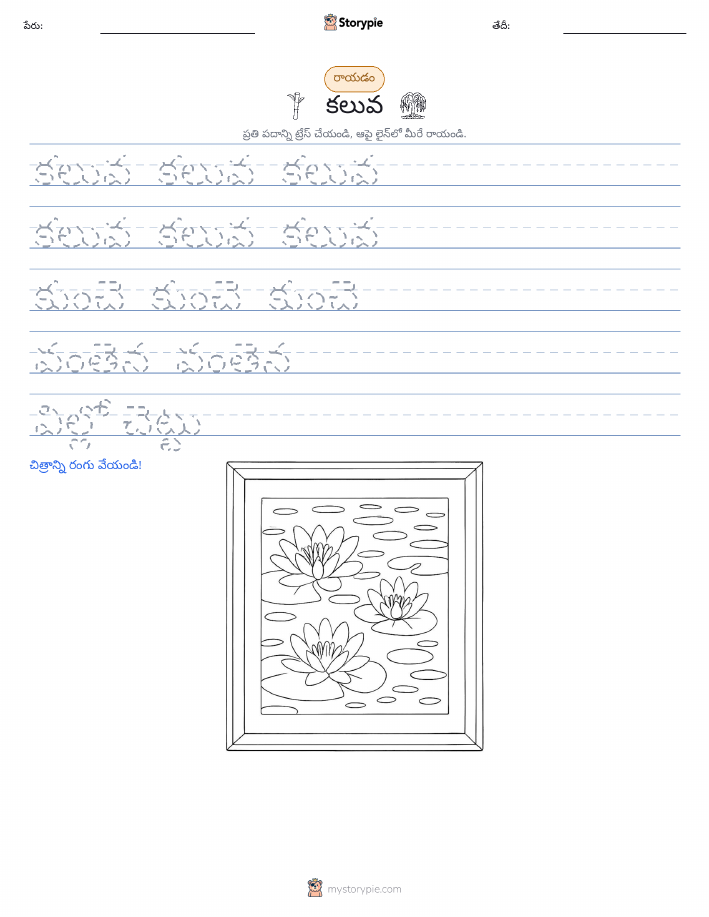 పేరు:
Storypie
తేదీ:
రాయడం
కలువ
ప్రతి పదాన్ని ట్రేస్ చేయండి, ఆపై లైన్‌లో మీరే రాయండి.
కలువ కలువ కలువ
కలువ కలువ కలువ
కుంచె కుంచె కుంచె
వంతెన వంతెన
విల్లో చెట్టు
చిత్రాన్ని రంగు వేయండి!
mystorypie.com